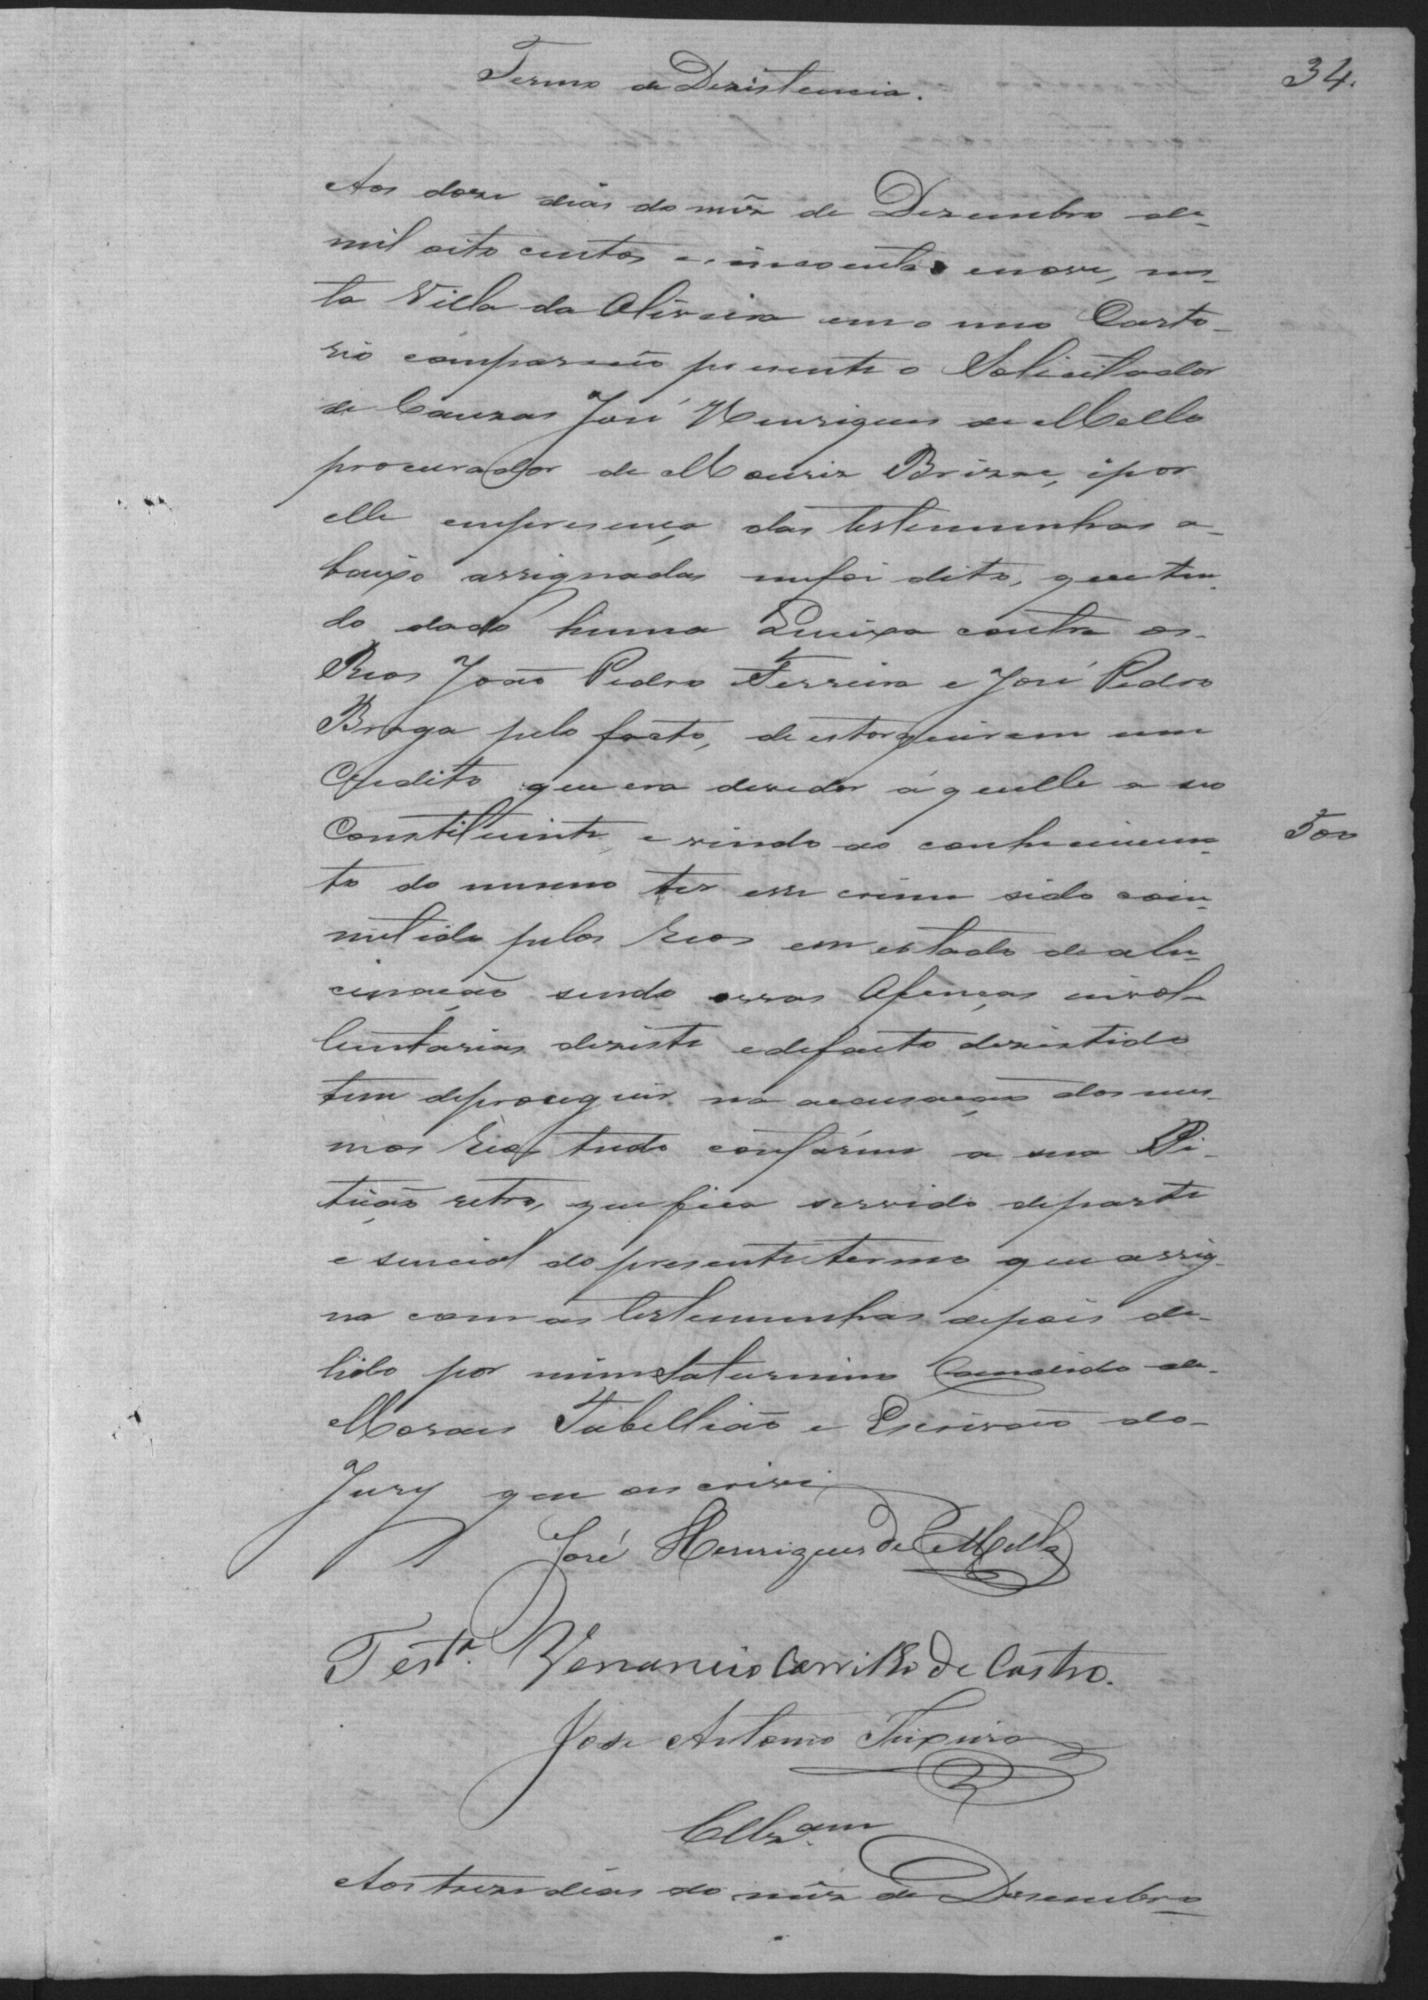 34.
Termo de Dezistencia.
Aos doze dias do mêz de Dezembro de
mil oito centos e cincoenta e nove, nes-
ta Villa da Oliveira em o meo Carto-
rio compareceo prezente o Solicitador
de Cauzas José Henriques de Mello
procurador de Mouriz Brizac, ipor
elle empresença das testemunhas a-
baixo assignadas mefoi dito, que ten-
do dado huma Queixa contra os
Reos João Pedro Ferreira e José Pedro
Braga pelo facto, de estorquirem um
Credito que era devedor áquelle a seo
Constituinte, e vindo ao conhecimen-
to do mesmo ter esse crime sido com-
metido pelos Reos em estado de alu-
cinação sendo essas Ofenças invol-
luntarias deziste edefacto dezistido
tem deproseguir na accusação dos mes-
mos Reos tudo confórme a sua Pi-
tição retro, que fica servido departe
e sencial do presente termo que assig-
na com as testemunhas depois de
lido por mim Saturnino Candido de
Moraes Tabellião e Escrivão do
Jury que o escrivi
José Henriques de Mello
Test.ª Venancio Carrilho de Castro.
José Antonio Teixeira
Clz.am
Aos treze dias do mêz de Dezembro